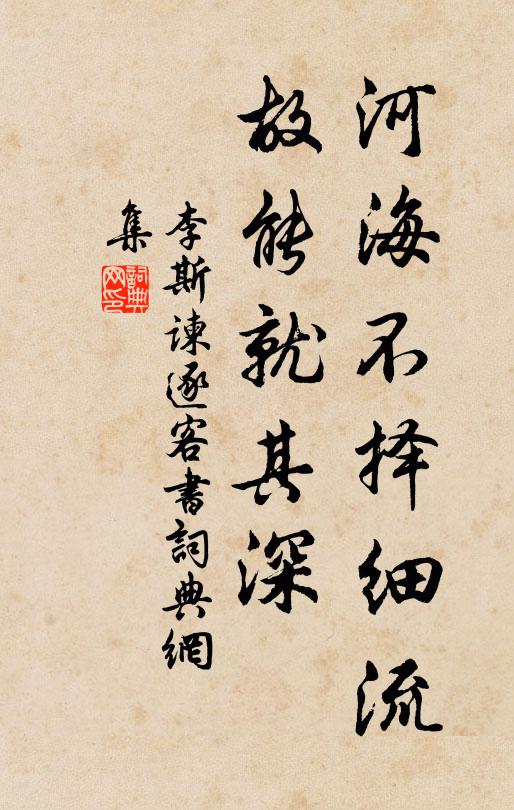 河海不择细流
故能就其深
李斯谏逐客書詞典網
集
詞典
网印